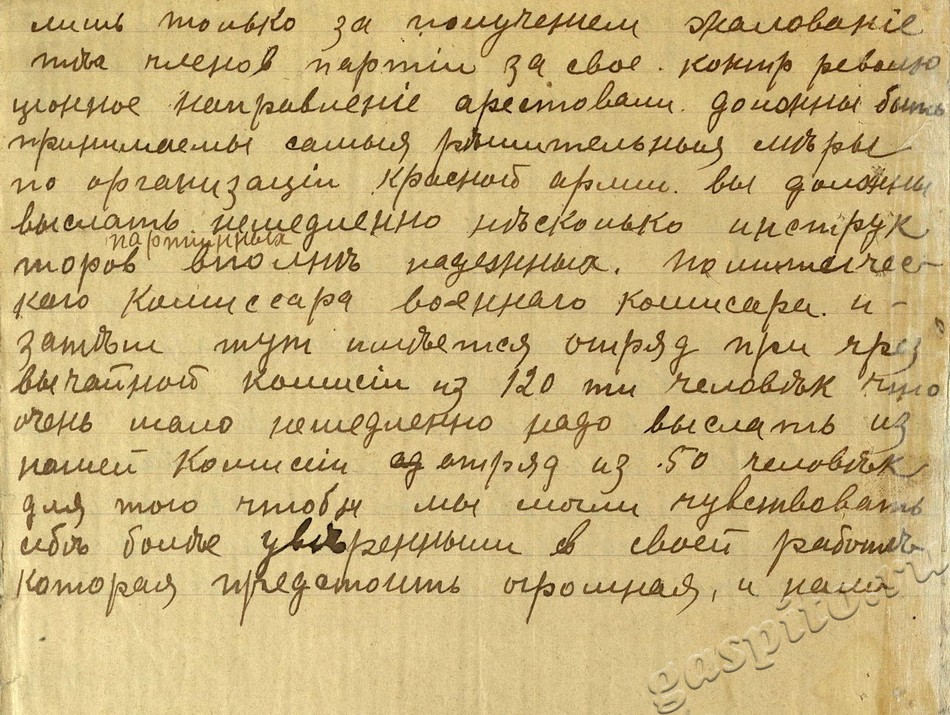 лишь только за получением жалованіе
тъ членов партіи за свое контр револю
ціонное направленіе арестовали. должны быть
принимаемы самыя рѣшительныя мѣры
по организаціи Красной армии. вы должны
выслать немедленно нѣсколько инструк
партійных
торов вполнѣ надежных. политичес-
каго Комиссара военнаго комисара. и -
затѣм тут имѣется отряд при чрез
вычайной комисіи из 120 ти человѣк что
очень мало немедленно надо выслать из
нашей Комисіи отряд из 50 человѣк
для того чтобы мы могли чувствовать
себѣ болѣе увѣренными в своей работѣ
которая предстоить огромная, и нам
gaspito.ru